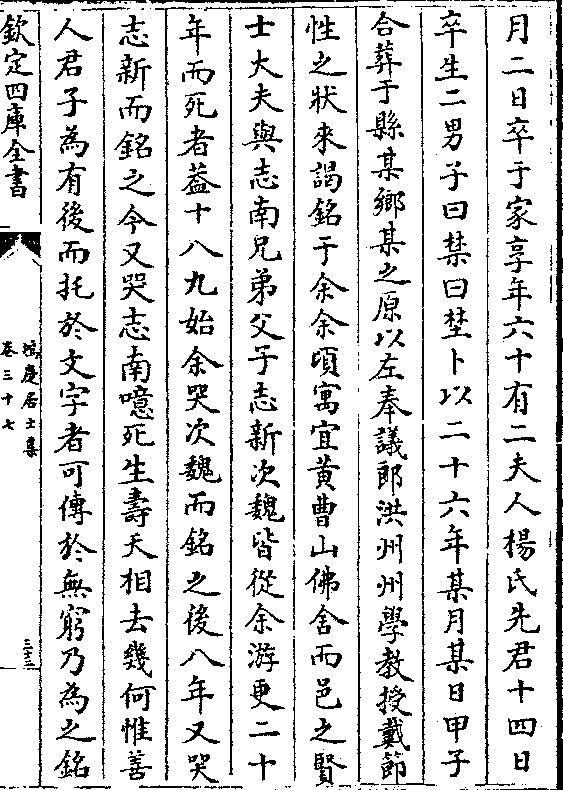 月二日卒于家享年六十有二夫人楊氏先君十四日
卒生二男子曰棼曰埜卜以二十六年某月某日甲子
合葬于縣某鄉某之原以左奉議郎洪州州學教授戴節
性之狀來謁銘于余余頃寓宜黃曹山佛舍而邑之賢
士大夫與志南兄弟父子志新次魏皆從余游更二十
年而死者葢十八九始余哭次魏而銘之後八年又哭
志新而銘之今又哭志南噫死生壽夭相去幾何惟善
人君子為有後而托於文字者可傳於無窮乃為之銘
欽定四庫全書
慶居士集
卷三十七